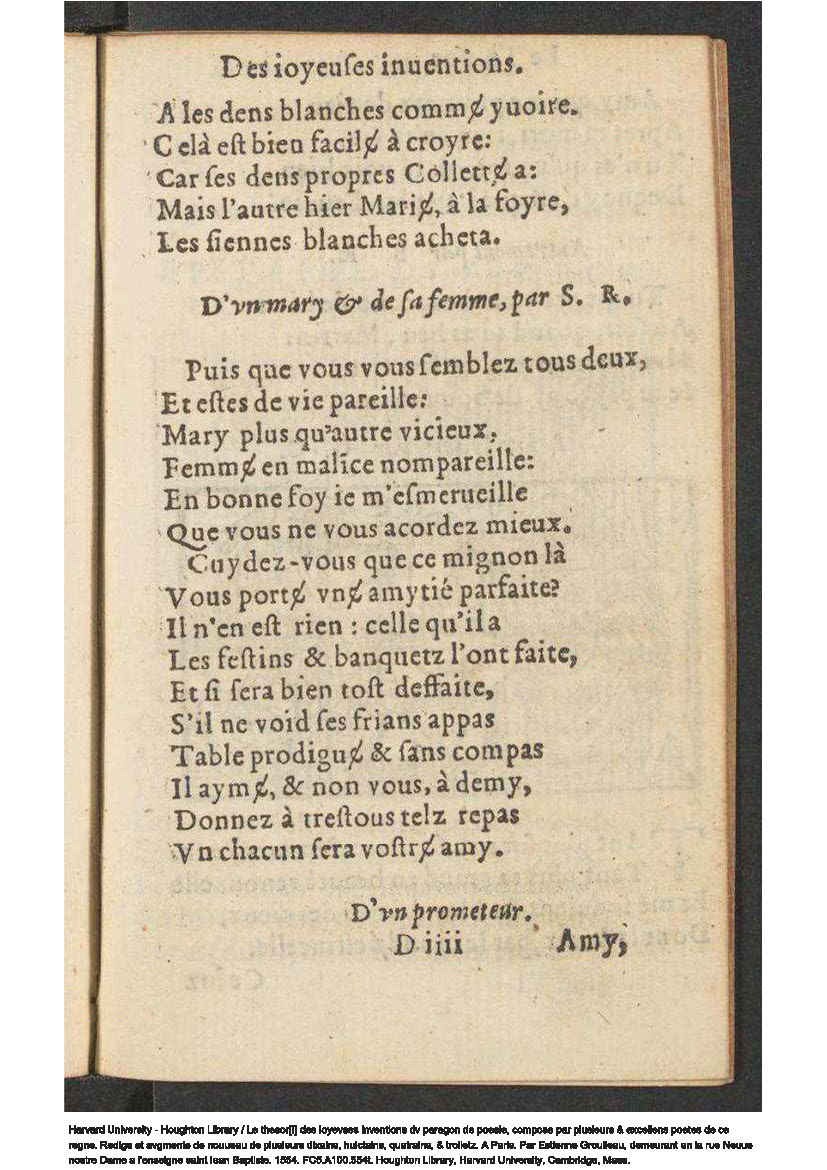 Des ioyeuſes inuentions.
A les dens blanches commɇ yuoire.
Celà eſt bien facilɇ à croyre:
Car ſes dens propres Collettɇ a:
Mais l'autre hier Mariɇ, à la foyre,
Les ſiennes blanches acheta.
D'vn mary & de ſa femme, par S. R.
Puis que vous vous ſemblez tous deux,
Et eſtes de vie pareille:
Mary plus qu'autre vicieux,
Femmɇ en malice nompareille:
En bonne foy ie m'eſmerueille
Que vous ne vous acordez mieux.
Cuydez-vous que ce mignon là
Vous portɇ vnɇ amytié parfaite?
Il n'en eſt rien : celle qu'il a
Les feſtins & banquetz l'ont faite,
Et ſi ſera bien toſt deffaite,
S'il ne void ſes frians appas
Table prodiguɇ & ſans compas
Il aymɇ, & non vous, à demy,
Donnez à treſtous telz repas
Vn chacun ſera voſtrɇ amy.
D'vn prometeur.
D iiii Amy,
Harvard University - Houghton Library / Le thesor[!] des ioyevses inventions dv paragon de poesie, compose par plusieurs & excellens poetes de ce
regne. Redige et avgmente de nouueau de plusieurs dixains, huictains, quatrains, & trolietz. A Paris. Par Estienne Groulleau, demeurant en la rue Neuue
nostre Dame a l'enseigne saint Iean Baptiste. 1554. FC5.A100.554t. Houghton Library, Harvard University, Cambridge, Mass.